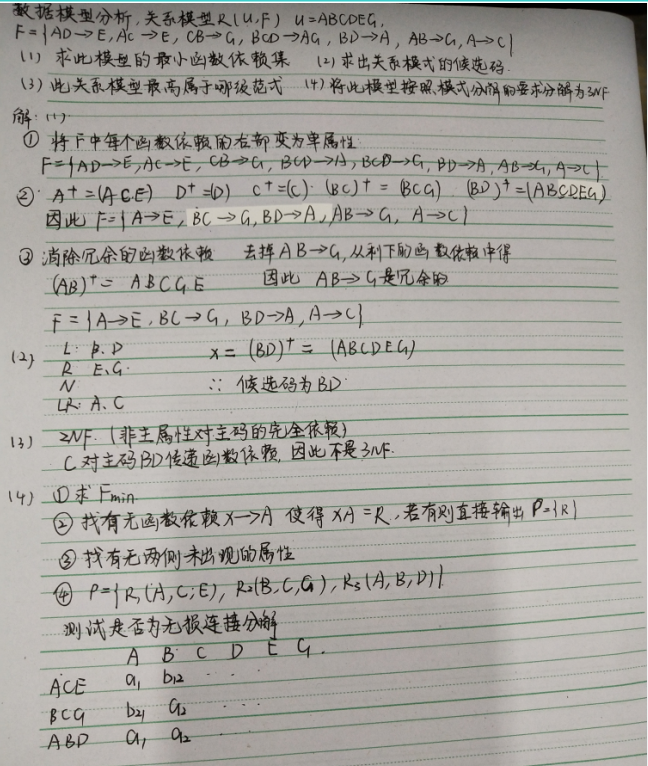 数据模型分析,关系模型R(U,F) U=ABCDEG,
F={AD→E,AC→E,CB→G,BCD→AG,BD→A,AB→G,A→C}
(1) 求此模型的最小函数依赖集 (2)求出关系模式的候选码.
(3)此关系模型最高属于哪级范式 (4)将此模型按照模式分解的要求分解为3NF
解:(1)
① 将F中每个函数依赖的右部变为单属性
F={AD→E,AC→E,CB→G,BCD→A,BCD→G,BD→A,AB→G,A→C}
② A+=(ACE) D+=(D) C+=(C). (BC)+=(BCG) (BD)+=(ABCDEG)
因此 F={A→E,BC→G,BD→A,AB→G,A→C}
③ 消除冗余的函数依赖 去掉AB→G,从剩下的函数依赖中得
(AB)+= ABCGE 因此 AB→G是冗余的
F={A→E,BC→G,BD→A,A→C}
(2) L: B.D x=(BD)+=(ABCDEG)
R E.G.
N ∴ 候选码为BD.
LR: A.C
(3) 2NF.(非主属性对主码的完全依赖)
C对主码BD传递函数依赖,因此不是3NF.
(4) ①求Fmin.
② 找有无函数依赖X→A 使得XA=R,若有则直接输出P={R}
③ 找有无两侧未出现的属性
④ P={R1(A,C,E),R2(B,C,G),R3(A,B,D)}
测试是否为无损连接分解
A B C D E G.
ACE a1 b12 . . .
BCG b21 a2 . . .
ABD a1 a2